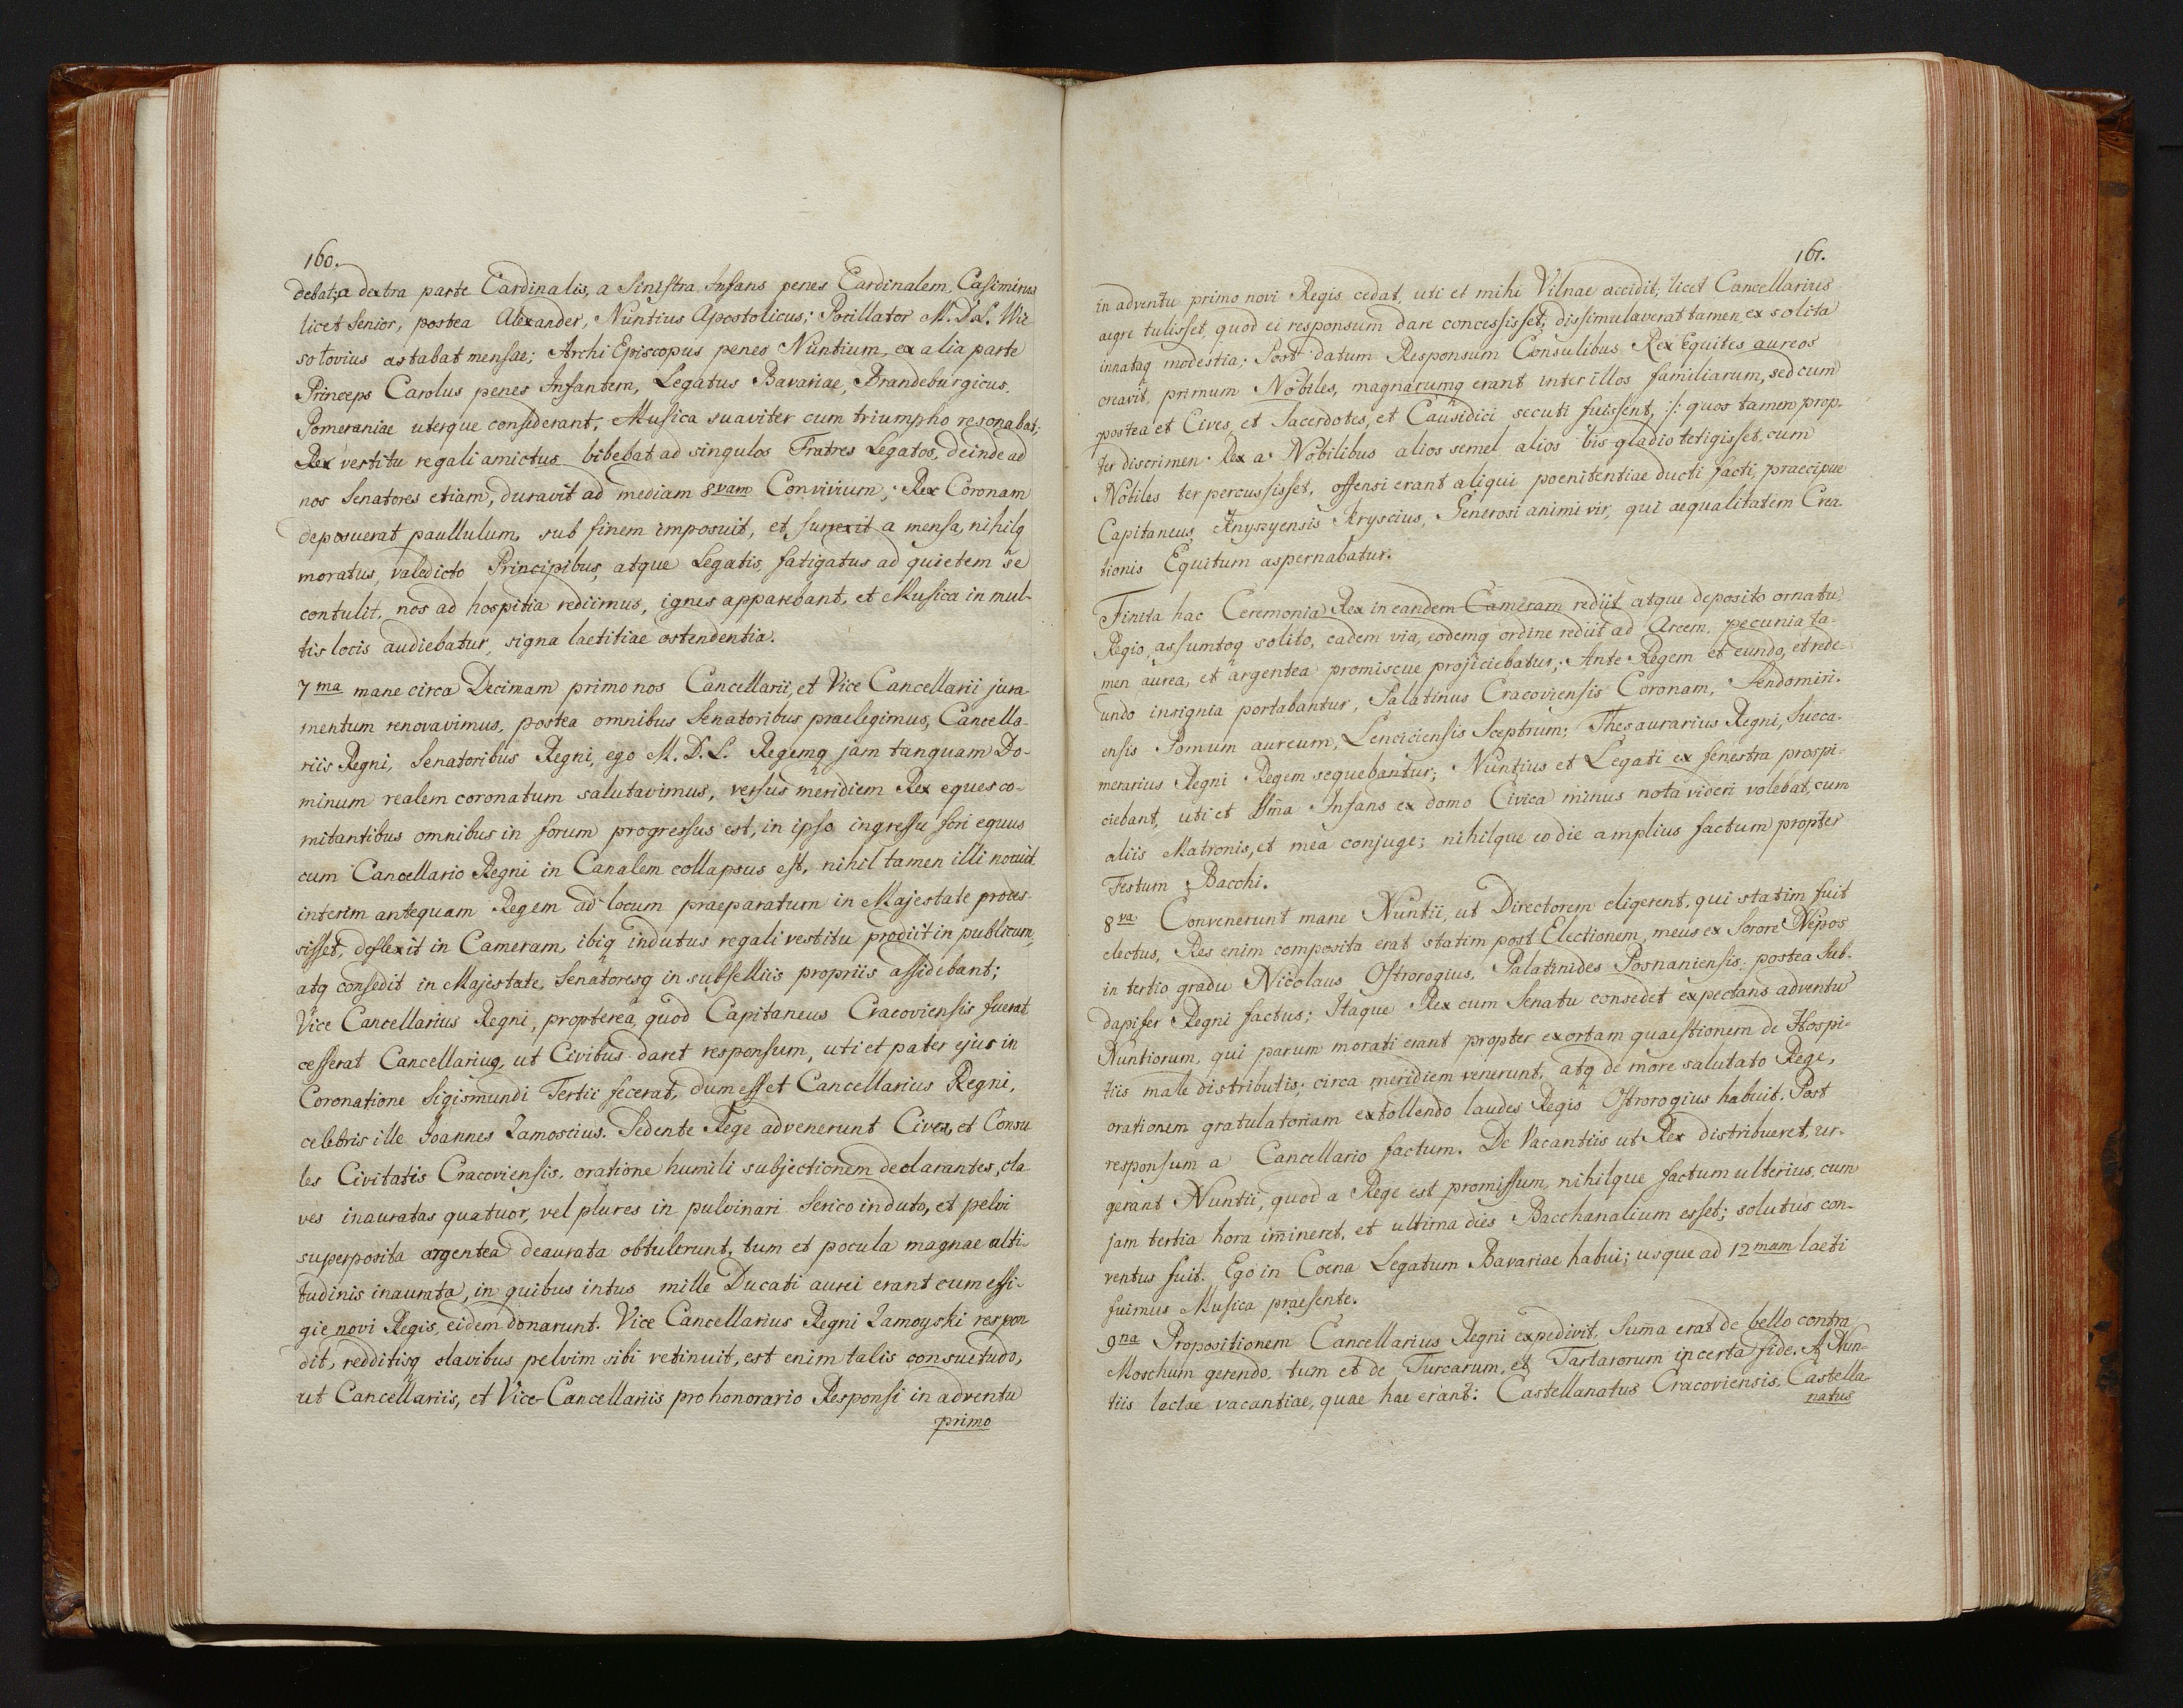 160.
debat; a dextra parte Cardinalis, a Sinistra Infans penes Cardinalem, Casimirus
licet Senior, postea Alexander, Nuntius Apostolicus; Pocillator M. D. L. Wie
sotovius astabat mensae; Archi Episcopus penes Nuntium, ex alia parte
Princeps Carolus penes Infantem, Legatus Bavariae, Brandeburgicus,
Pomeraniae uterque considerant. Musica suaviter cum triumpho resonabat;
Rex vertitu regali amictus bibebat ad singulos Fratres Legatos, deinde ad
nos Senatores etiam, duravit ad mediam 8vam Convivium; Rex Coronam
deposuerat paullulum, sub finem imposuit, et surrexit a mensa, nihilq
moratus, valedicto Principibus, atque Legatis, fatigatus ad quietem se
contulit, nos ad hospitia rediimus, ignes apparebant, et Musica in mul-
tis locis audiebatur, signa laetitiae ostendentia.
7ma mane circa Decimam primo nos Cancellarii, et Vice Cancellarii jura-
mentum renovavimus, postea omnibus Senatoribus praelegimus, Cancella-
riis Regni, Senatoribus Regni, ego M. D. L. Regemq jam tanquam Do-
minum realem coronatum salutavimus, versus meridiem Rex eques co-
mitantibus omnibus in forum progressus est, in ipso ingressu fori equus
cum Cancellario Regni in Canalem collapsus est, nihil tamen illi nocuit
interim antequam Regem ad locum praeparatum in Majestate proces-
sisset, deflexit in Cameram, ibiq indutus regali vestitu prodiit in publicum,
atq consedit in Majestate, Senatoresq in subselliis propriis assidebant;
Vice Cancellarius Regni, propterea, quod Capitaneus Cracoviensis fuerat
cesserat Cancellarius, ut Civibus daret responsum, uti et pater ejus in
Coronatione Sigismundi Tertii fecerat, dum esset Cancellarius Regni,
celebris ille Joannes Zamoscius. Sedente Rege advenerunt Cives, et Consu
les Civitatis Cracoviensis, oratione humili subjectionem declarantes, cla
ves inauratas quatuor, vel plures in pulvinari Serico induto, et pelvi
superposita argentea deaurata obtulerunt, tum et pocula magnae alti-
tudinis inaurata, in quibus intus mille Ducati aurei erant cum effi-
gie novi Regis, eidem donarunt. Vice Cancellarius Regni Zamoyski respon
dit, redditisq clavibus pelvim sibi retinuit, est enim talis consuetudo,
ut Cancellariis, et Vice-Cancellariis pro honorario Responsi in adventu
primo
161.
in adventu primo novi Regis cedat, uti et mihi Vilnae accidit; licet Cancellarius
aegre tulisset, quod ei responsum dare concessisset; dissimulaverat tamen ex solita
innataq modestia; Post datum Responsum Consulibus Rex Equites aureos
creavit, primum Nobiles, magnarumq erant inter illos familiarum, sed cum
postea et Cives, et Sacerdotes, et Causidici secuti fuissent, :/: quos tamen prop-
ter discrimen Rex a Nobilibus alios semel alios bis gladio tetigisset, cum
Nobiles ter percussisset, offensi erant aliqui poenitentiae ducti facti, praecipue
Capitaneus Knyszyensis Kryscius, Generosi animi vir, qui aequalitatem Crea
tionis Equitum aspernabatur.
Finita hac Ceremonia Rex in eandem Cameram rediit atque deposito ornatu
Regio, assumtoq solito, eadem via, eodemq ordine rediit ad Arcem, pecunia ta-
men aurea, et argentea promiscue projiciebatur; Ante Regem et eundo, et rede-
undo insignia portabantur, Palatinus Cracoviensis Coronam, Sendomiri-
ensis Pomum aureum, Lenciciensis Sceptrum; Thesaurarius Regni, Succa-
merarius Regni Regem sequebantur; Nuntius et Legati ex fenestra prospi-
ciebant, uti et Sma Infans ex domo Civica minus nota videri volebat, cum
aliis Matronis, et mea conjuge; nihilque eo die amplius factum propter
Festum Bacchi.
8va Convenerunt mane Nuntii, ut Directorem eligerent, qui statim fuit
electus, Res enim composita erat statim post Electionem, meus ex Sorore Nepos
in tertio gradu Nicolaus Ostrorogius, Palatinides Posnaniensis, postea Sub-
dapifer Regni factus; Itaque Rex cum Senatu consedet expectans adventu
Nuntiorum, qui parum morati erant propter exortam quaestionem de Hospi-
tiis male distributis; circa meridiem venerunt, atq de more salutato Rege,
orationem gratulatoriam extollendo laudes Regis Ostrorogius habuit. Post
responsum a Cancellario factum. De Vacantiis ut Rex distribueret, ur-
gerant Nuntii, quod a Rege est promissum, nihilque factum ulterius, cum
jam tertia hora imineret, et ultima dies Bacchanalium esset; solutus con-
ventus fuit. Ego in Coena Legatum Bavariae habui; usque ad 12mam laeti
fuimus Musica praesente.
9na Propositionem Cancellarius Regni expedivit. Suma erat de bello contra
Moschum gerendo, tum et de Turcarum, et Tartarorum incerta fide. A Nun-
tiis lectae vacantiae, quae hae erant: Castellanatus Cracoviensis, Castella-
natus